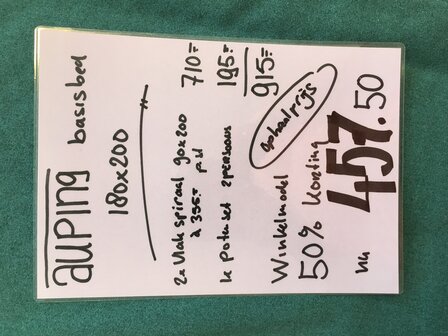 auping basisbed
180x200 "
2x Vlak spiraal 90x200 710=
à 355.- p st
1x potenset 2persoons 195=
915=
ophaalprijs
Winkelmodel
50% korting
nu 457.50